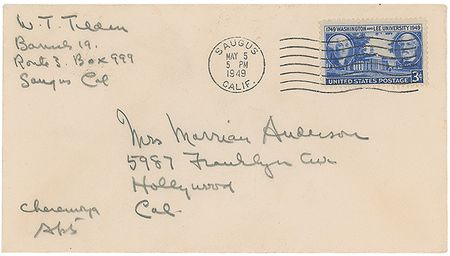 W. T. Tilden
Barrack 19.
Route 3. Box 999
Saugus Cal
SAUGUS
MAY 5
5 PM
1949
CALIF.
1749 WASHINGTON AND LEE UNIVERSITY 1949
UNITED STATES POSTAGE 3¢
Mrs Marrian Anderson
5987 Franklyn Ave
Hollywood
Cal.
Cheremoya
Apts